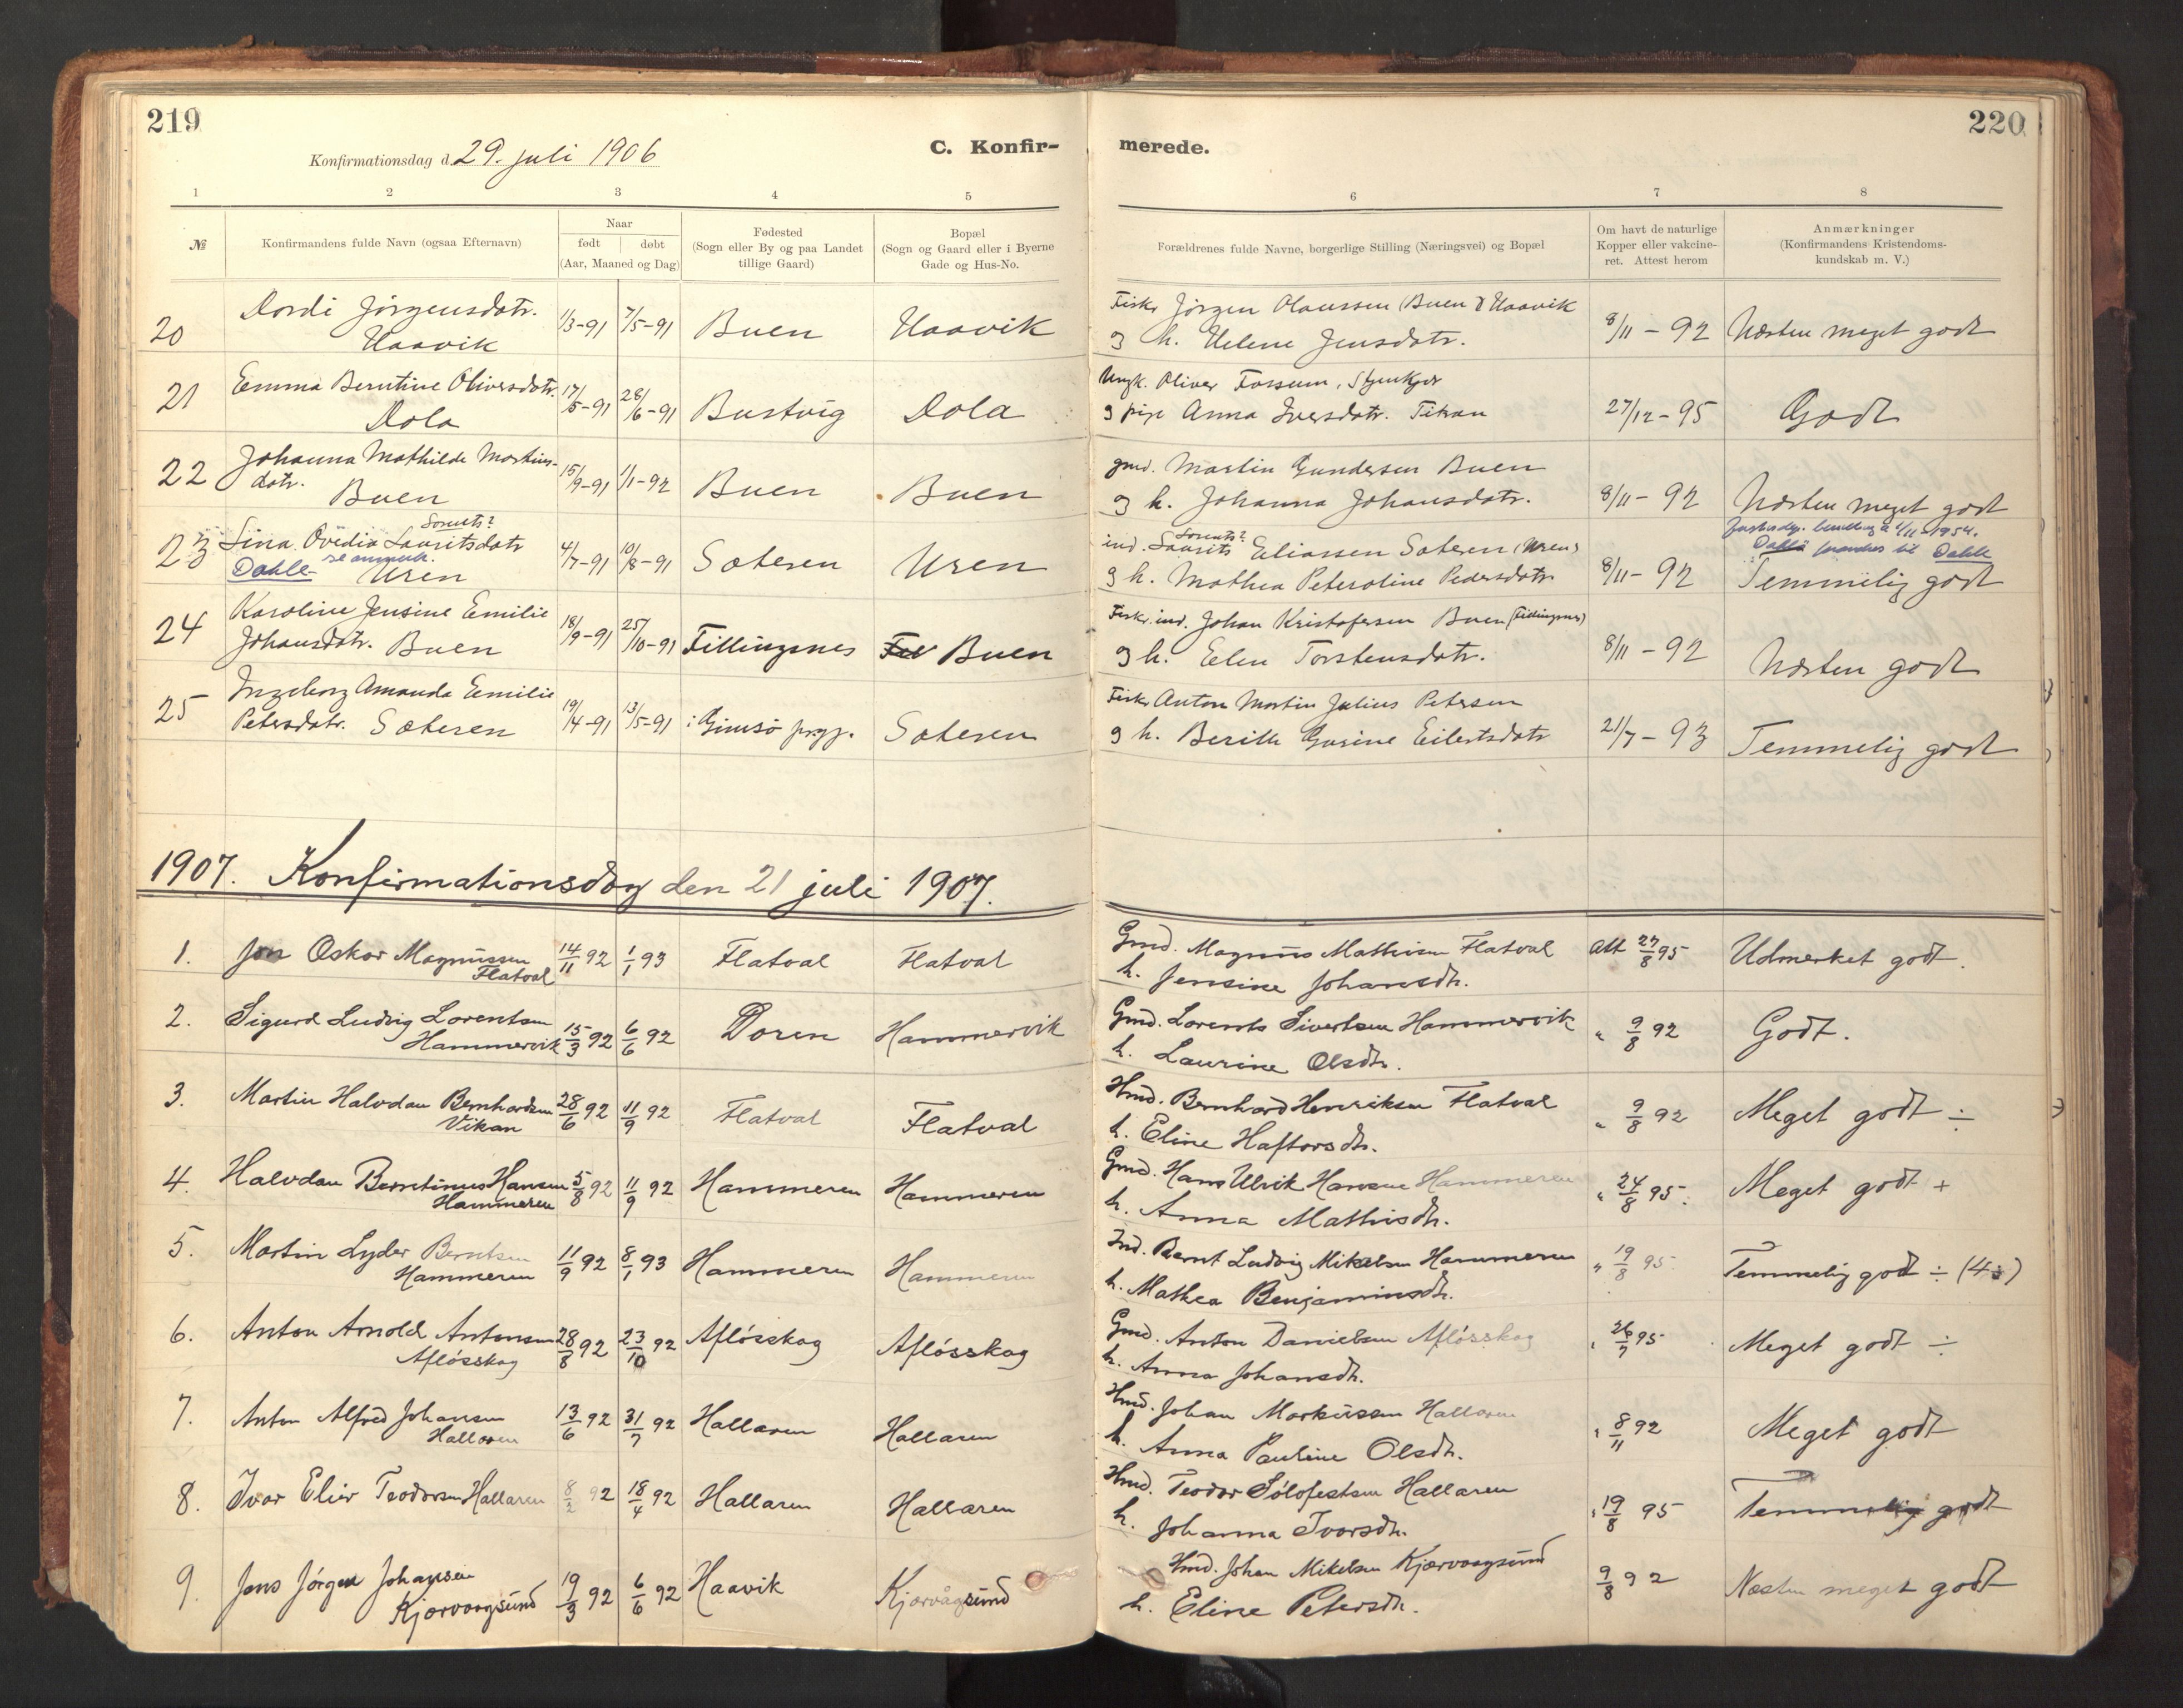 219
Konfirmationsdag d. 29. juli 1906
C. Konfir-
merede.
220
1 2 3 4 5 6 7 8
№
Konfirmandens fulde Navn (ogsaa Efternavn)
Naar
født døbt
(Aar, Maaned og Dag)
Fødested
(Sogn eller By og paa Landet
tillige Gaard)
Bopæl
(Sogn og Gaard eller i Byerne
Gade og Hus-No.
Forældrenes fulde Navne, borgerlige Stilling (Næringsvei) og Bopæl
Om havt de naturlige
Kopper eller vakcine-
ret. Attest herom
Anmærkninger
(Konfirmandens Kristendoms-
kundskab m. V.)
20 Dordi Jørgensdatr.
Haavik 1/3-91 7/5-91 Buen Haavik
Fisk. Jørgen Olaussen (Buen) Haavik
g h. Helene Jensdatr. 8/11-92 Næsten meget godt
21 Emma Berntine Oliversdatr.
Dola 17/5-91 28/6-91 Bustvig Dola
Ungk. Oliver Fossum, Stenkjer
g pige Anna Iversdatr. Titran 27/12-95 Godt
22 Johanna Mathilde Martins-
datr. Buen 15/9-91 1/1-92 Buen Buen
gmd. Martin Gundersen Buen
g h. Johanna Johansdatr. 8/11-92 Næsten meget godt
23 Lina Ovedia Lauritsdatr
Dahle Uren 4/7-91 10/8-91 Sæteren Uren
ind. Laurits Eliassen Sæteren (Uren)
g h. Mathea Peteroline Pedersdatr. 8/11-92 Temmelig godt
24 Karoline Jensine Emilie
Johansdatr. Buen 18/9-91 25/10-91 Fillingsnes Buen
Fisk. ind. Johan Kristofersen Buen
g h. Elen Torstensdatr. 8/11-92 Næsten godt
25 Ingeborg Amanda Emilie
Petersdatr. Sæteren 19/4-91 13/5-91 i Gimsø prgj. Sæteren
Fisk. Anton Martin Julius Petersen
g h. Berith Gurine Eilertsdatr 21/7-93 Temmelig godt
1907. Konfirmationsdag den 21 juli 1907.
1. Jon Oskar Magnussen
Flatval 14/11 92 1/1 93 Flatval Flatval
Gmd. Magnus Mathisen Flatval
h. Jensine Johansdtr. Att 27/8 95 Udmerket godt.
2. Sigurd Ludvig Lorentsen
Hammervik 15/3 92 6/6 92 Doren Hammervik
Gmd. Lorents Sivertsen Hammervik
h. Laurine Olsdtr. " 9/8 92 Godt.
3. Martin Halvdan Bernhardsen
Vikan 28/6 92 11/9 92 Flatval Flatval
Hmd. Bernhard Henriksen Flatval
h. Eline Haftorsdtr. " 9/8 92 Meget godt ÷
4. Halvdan Berntinus Hansen
Hammeren 5/8 92 11/9 92 Hammeren Hammeren
Gmd. Hans Ulrik Hansen Hammeren
h. Anna Mathisdtr. " 24/8 95. Meget godt +
5. Martin Lyder Berntsen
Hammeren 11/9 92 8/1 93 Hammeren Hammeren
Ind. Bernt Ludvig Mikelsen Hammeren
h. Mathea Benjaminsdtr. " 19/8 95 Temmelig god ÷
6. Anton Arnold Antonsen
Afløsskag 28/8 92 23/10 92 Afløsskag Afløsskag
Gmd. Anton Danielsen Afløsskag
h. Anna Johansdtr. " 26/7 95 Meget godt ÷
7. Anton Alfred Johansen
Hallaren 13/6 92 31/7 92 Hallaren Hallaren
Hmd. Johan Markussen Hallaren
h. Anna Pauline Olsdtr. " 8/11 92 Meget godt
8. Ivar Eliv Teodorsen Hallaren 8/2 92 18/4 92 Hallaren Hallaren
Hmd. Teodor Sølofestsen Hallaren
h. Johanna Ivarsdtr. " 19/8 95 Temmelig godt
9. Jens Jørgen Johansen
Kjørvaagsund 19/3 92 6/6 92 Haavik Kjørvågsund
Hmd. Johan Mikelsen Kjørvaagsund
h. Eline Petersdtr. 9/8 92 Næsten meget godt